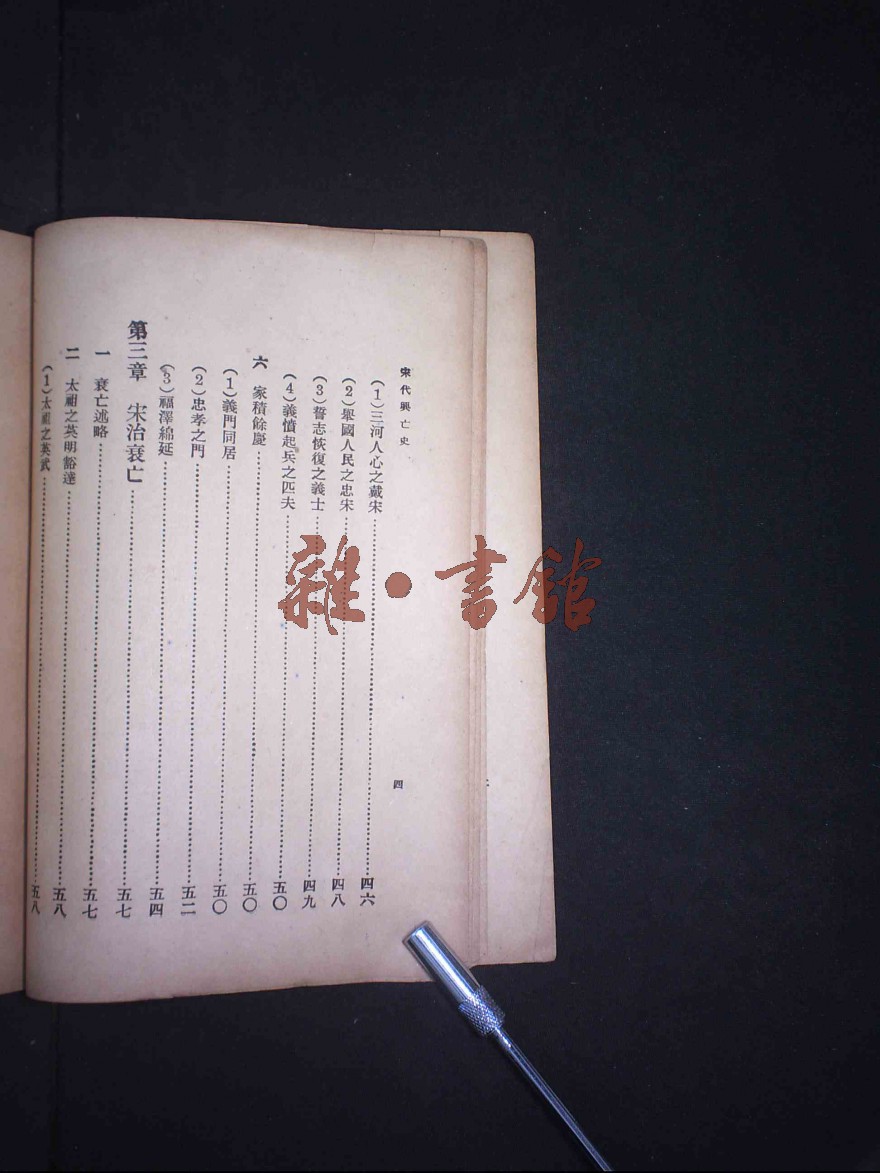 宋代興亡史
四
(1)三河人心之戴宋……四六
(2)舉國人民之忠宋……四八
(3)誓志恢復之義士……四九
(4)義憤起兵之匹夫……五〇
六 家積餘慶……五〇
(1)義門同居……五〇
(2)忠孝之門……五二
(3)福澤綿延……五四
第三章 宋治衰亡……五七
一 衰亡述略……五七
二 太祖之英明豁達……五八
(1)太祖之英武……五八
雜·書館